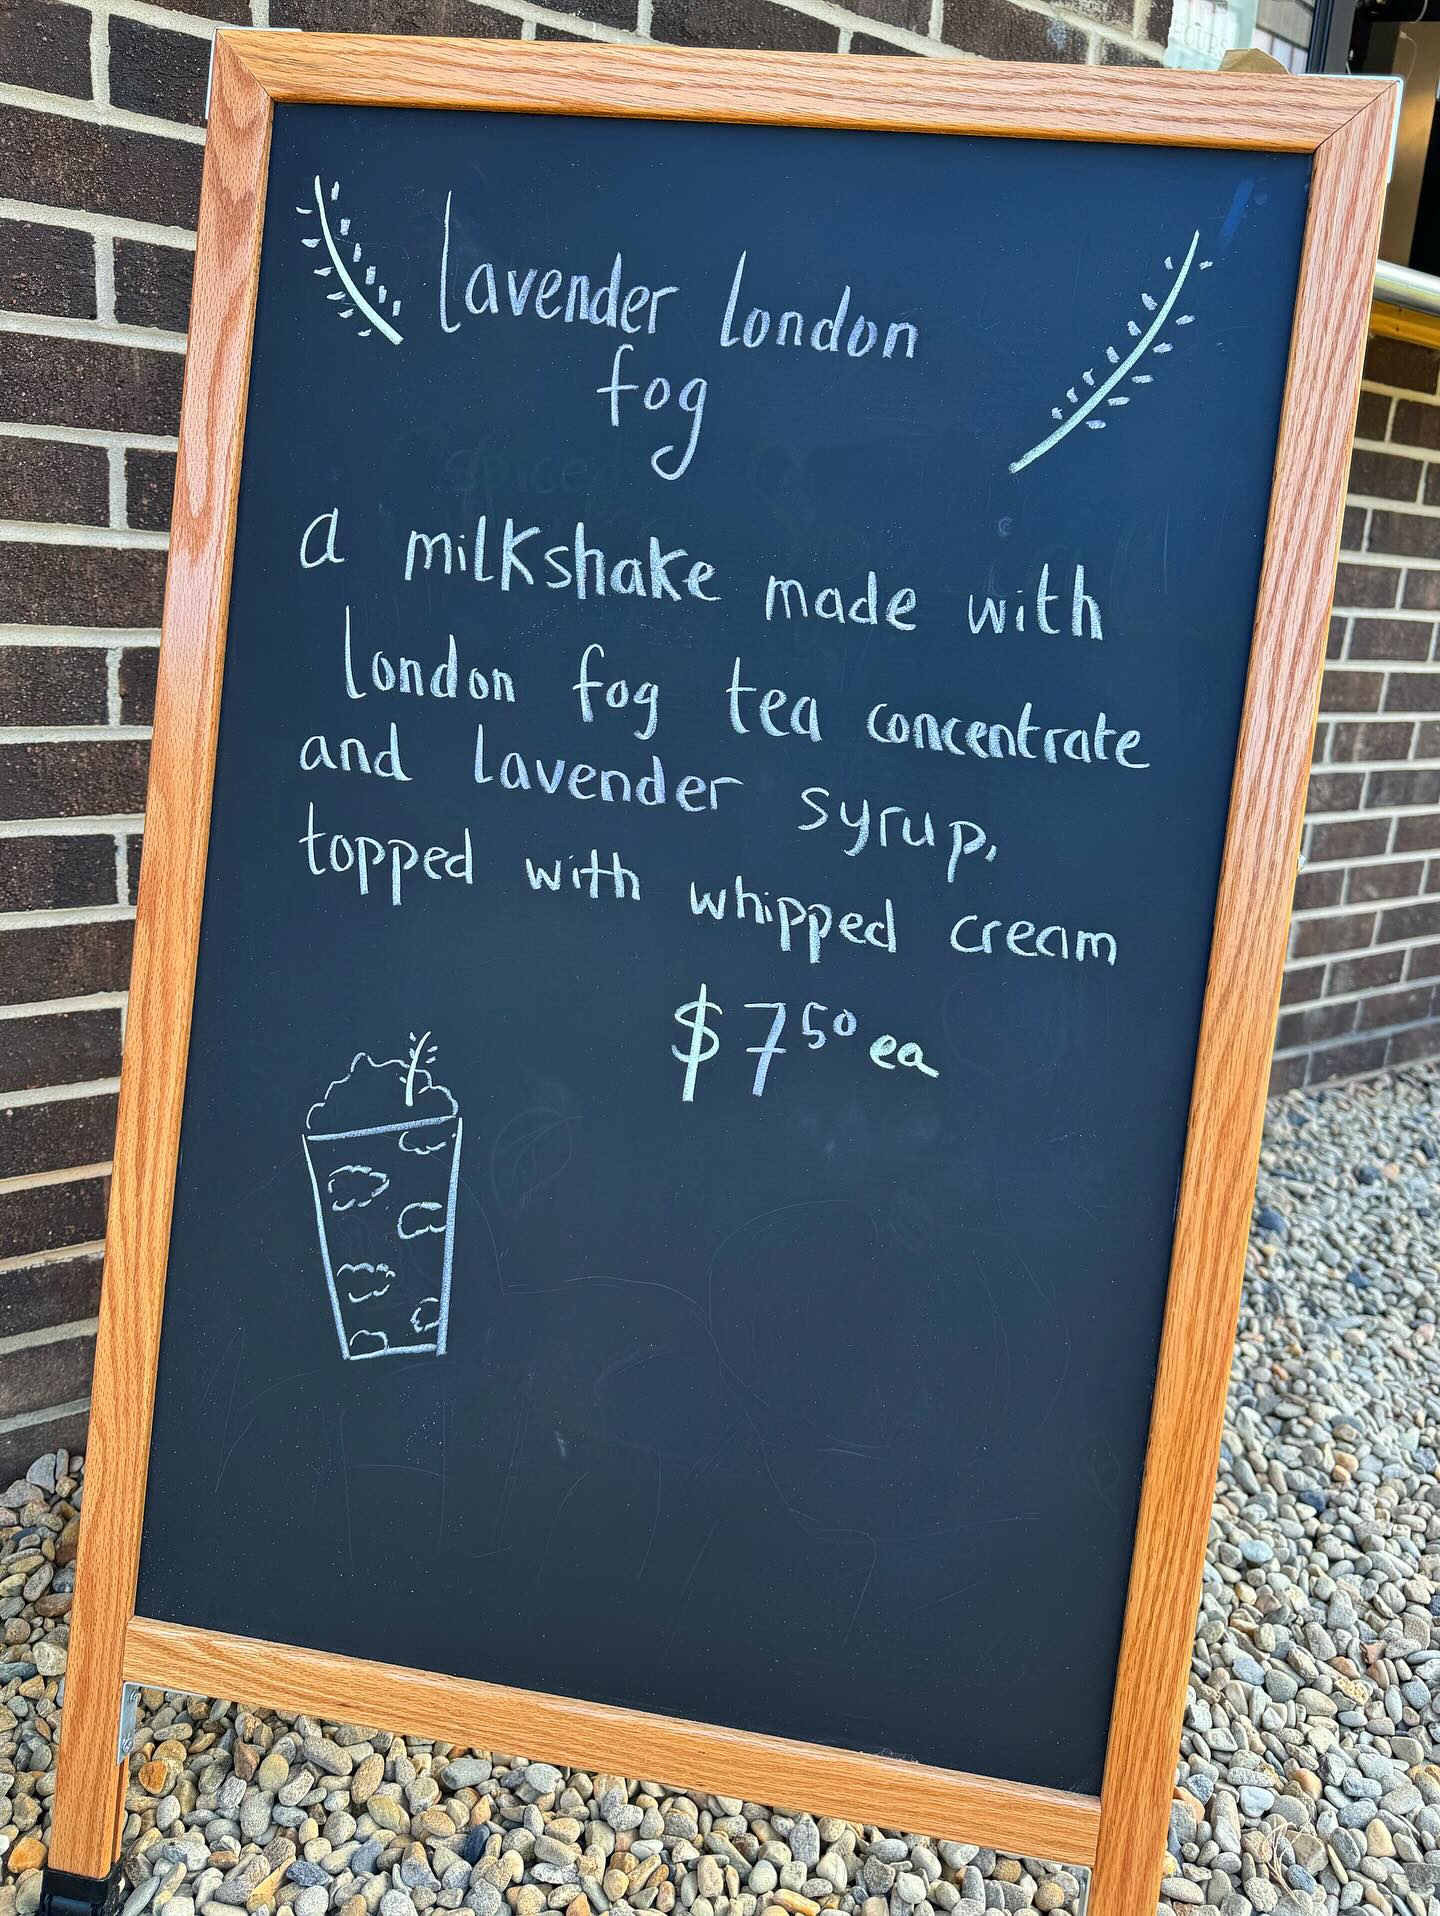 lavender london
fog
a milkshake made with
london fog tea concentrate
and lavender syrup,
topped with whipped cream
$7.50 ea